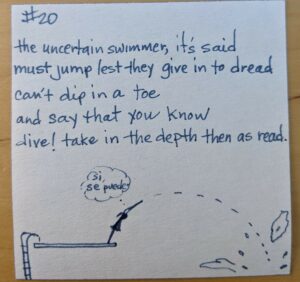 #20
the uncertain swimmer, it's said
must jump lest they give in to dread
can't dip in a toe
and say that you know
dive! take in the depth then as read.
si,
se puede